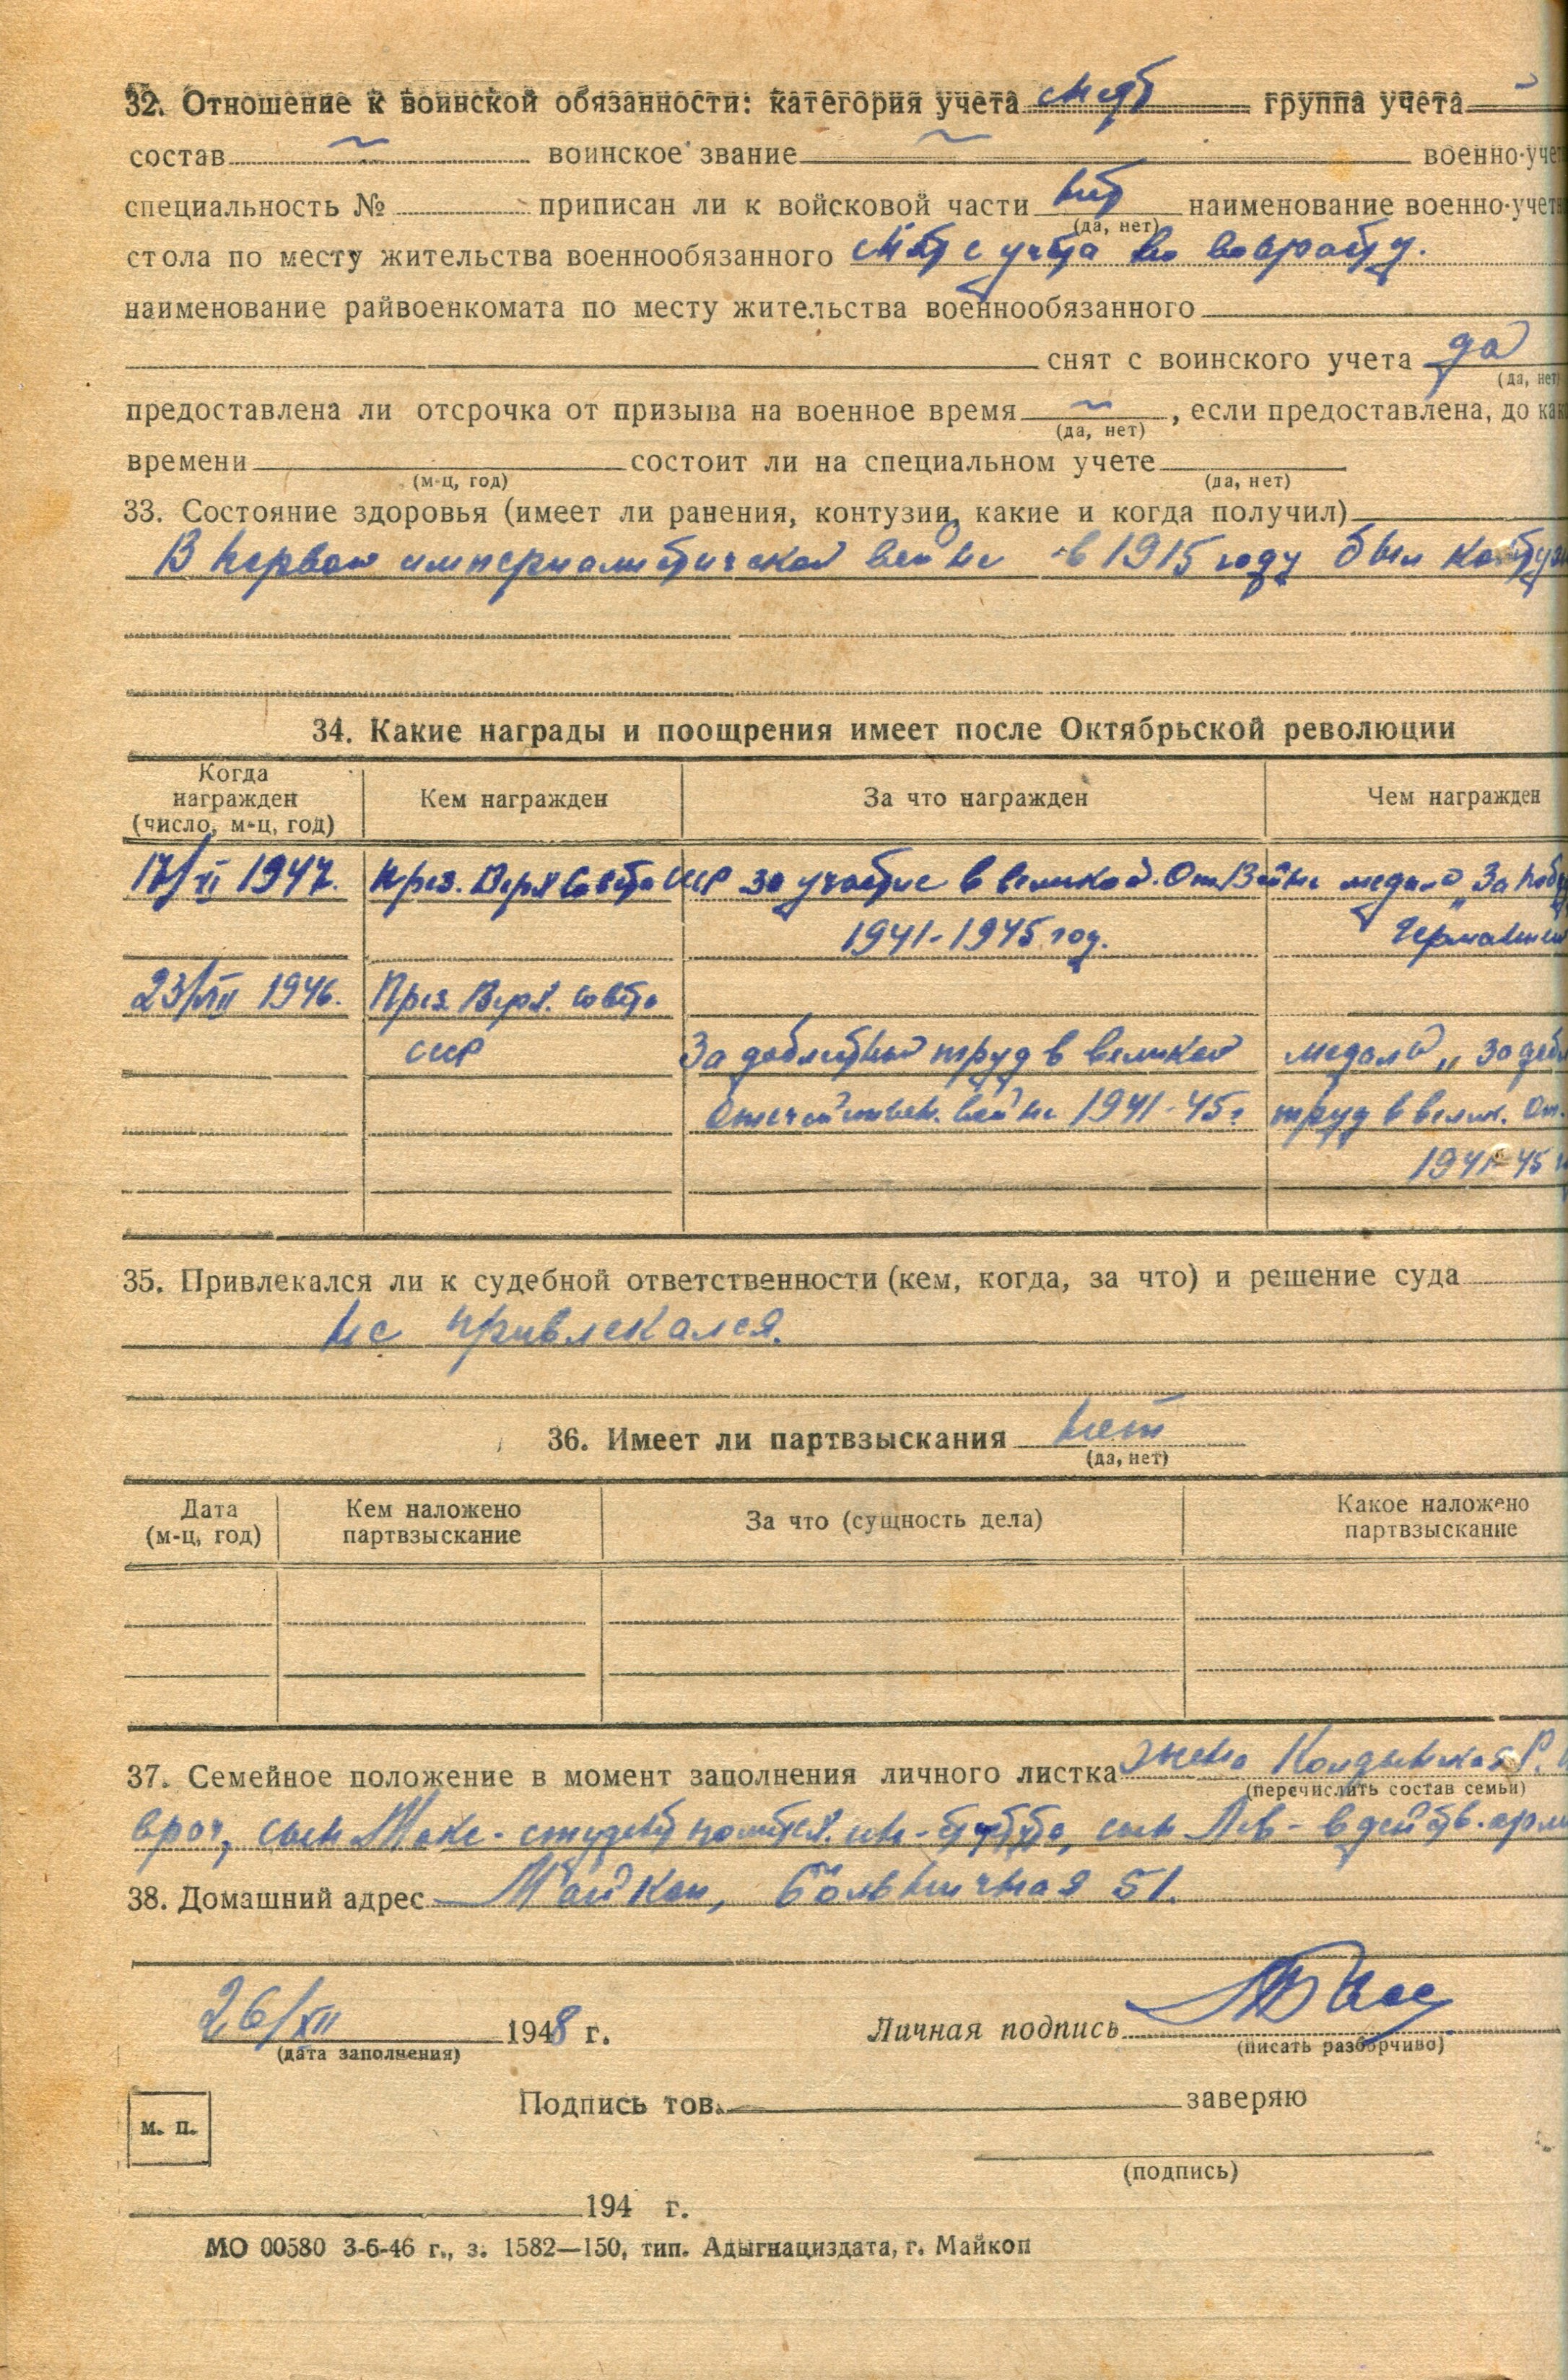 32. Отношение к воинской обязанности: категория учета группа учета
состав воинское звание военно-уче
специальность № приписан ли к войсковой части нет наименование военно-учет
(да, нет)
стола по месту жительства военнообязанного с учета по возрасту.
наименование райвоенкомата по месту жительства военнообязанного
снят с воинского учета да
(да, нет)
предоставлена ли отсрочка от призыва на военное время , если предоставлена, до как
(да, нет)
времени состоит ли на специальном учете
(м-ц, год) (да, нет)
33. Состояние здоровья (имеет ли ранения, контузии, какие и когда получил)
В первой империалистической войне в 1915 году был контузи
34. Какие награды и поощрения имеет после Октябрьской революции
Когда награжден (число, м-ц, год) Кем награжден За что награжден Чем награжден
17/VI 1947. През. Верх Совета СССР за участие в великой От. Войне медаль „За побед
1941-1945 год. Германией
23/VIII 1946. През. Верх. Совета
СССР За доблестный труд в великой медаль „За добл
Отечественн. войне 1941-45г труд в велик. От.
1941-45
35. Привлекался ли к судебной ответственности (кем, когда, за что) и решение суда
Не привлекался.
36. Имеет ли партвзыскания нет
(да, нет)
Дата (м-ц, год) Кем наложено партвзыскание За что (сущность дела) Какое наложено партвзыскание
37. Семейное положение в момент заполнения личного листка жена Колдынская Р.
(перечислить состав семьи)
врач, сын Макс - студент ин-ститута, сын Лев - в действ. арми
38. Домашний адрес Майкоп, Больничная 51.
26/XII 1948 г. Личная подпись
(дата заполнения) (писать разборчиво)
Подпись тов. заверяю
м. п.
(подпись)
194 г.
МО 00580 3-6-46 г., з. 1582—150, тип. Адыгнациздата, г. Майкоп